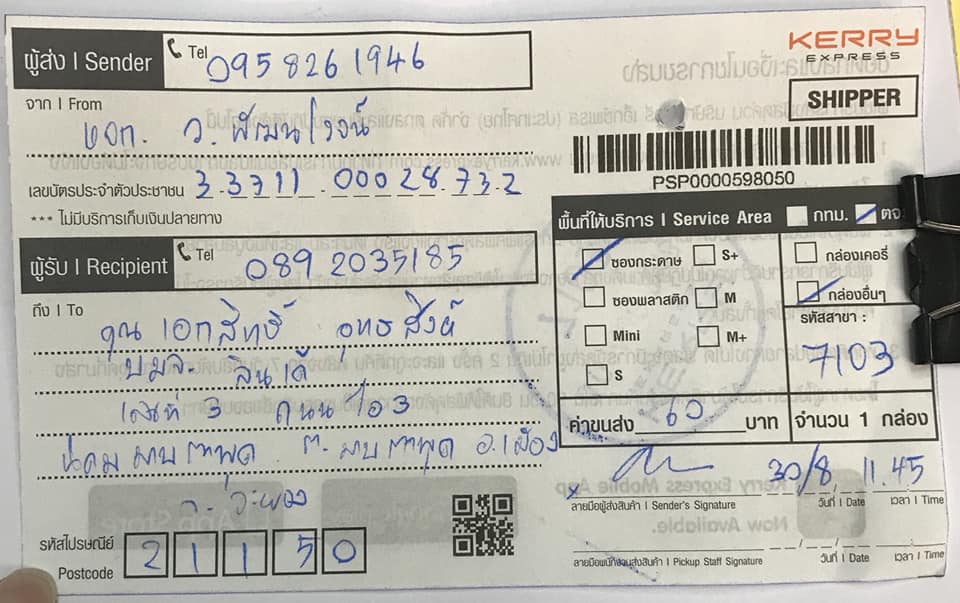 KERRY
EXPRESS
SHIPPER
PSP0000598050
ผู้ส่ง I Sender
Tel 095 8261946
จาก I From
หจก. ว. พัฒนโรจน์
เลขบัตรประจำตัวประชาชน 3 3711 00028 73 2
*** ไม่มีบริการเก็บเงินปลายทาง
ผู้รับ I Recipient
Tel 089 2035185
ถึง I To
คุณ เอกสิทธิ์ อุทธสิงห์
บมจ. ลินเด้
เลขที่ 3 ถนน ไอ 3
นิคม มาบตาพุด ต. มาบตาพุด อ. เมือง
จ. ระยอง
รหัสไปรษณีย์
Postcode
21150
พื้นที่ให้บริการ I Service Area กทม. ตจ
ซองกระดาษ S+ กล่องเคอรี่
ซองพลาสติก M กล่องอื่นๆ
Mini M+
S
รหัสสาขา :
7103
ค่าขนส่ง 60 บาท
จำนวน 1 กล่อง
x 30/8 11.45
ลายมือผู้ส่งสินค้า I Sender's Signature วันที่ I Date เวลา I Time
ลายมือพนักงานส่งสินค้า I Pickup Staff Signature วันที่ I Date เวลา I Time